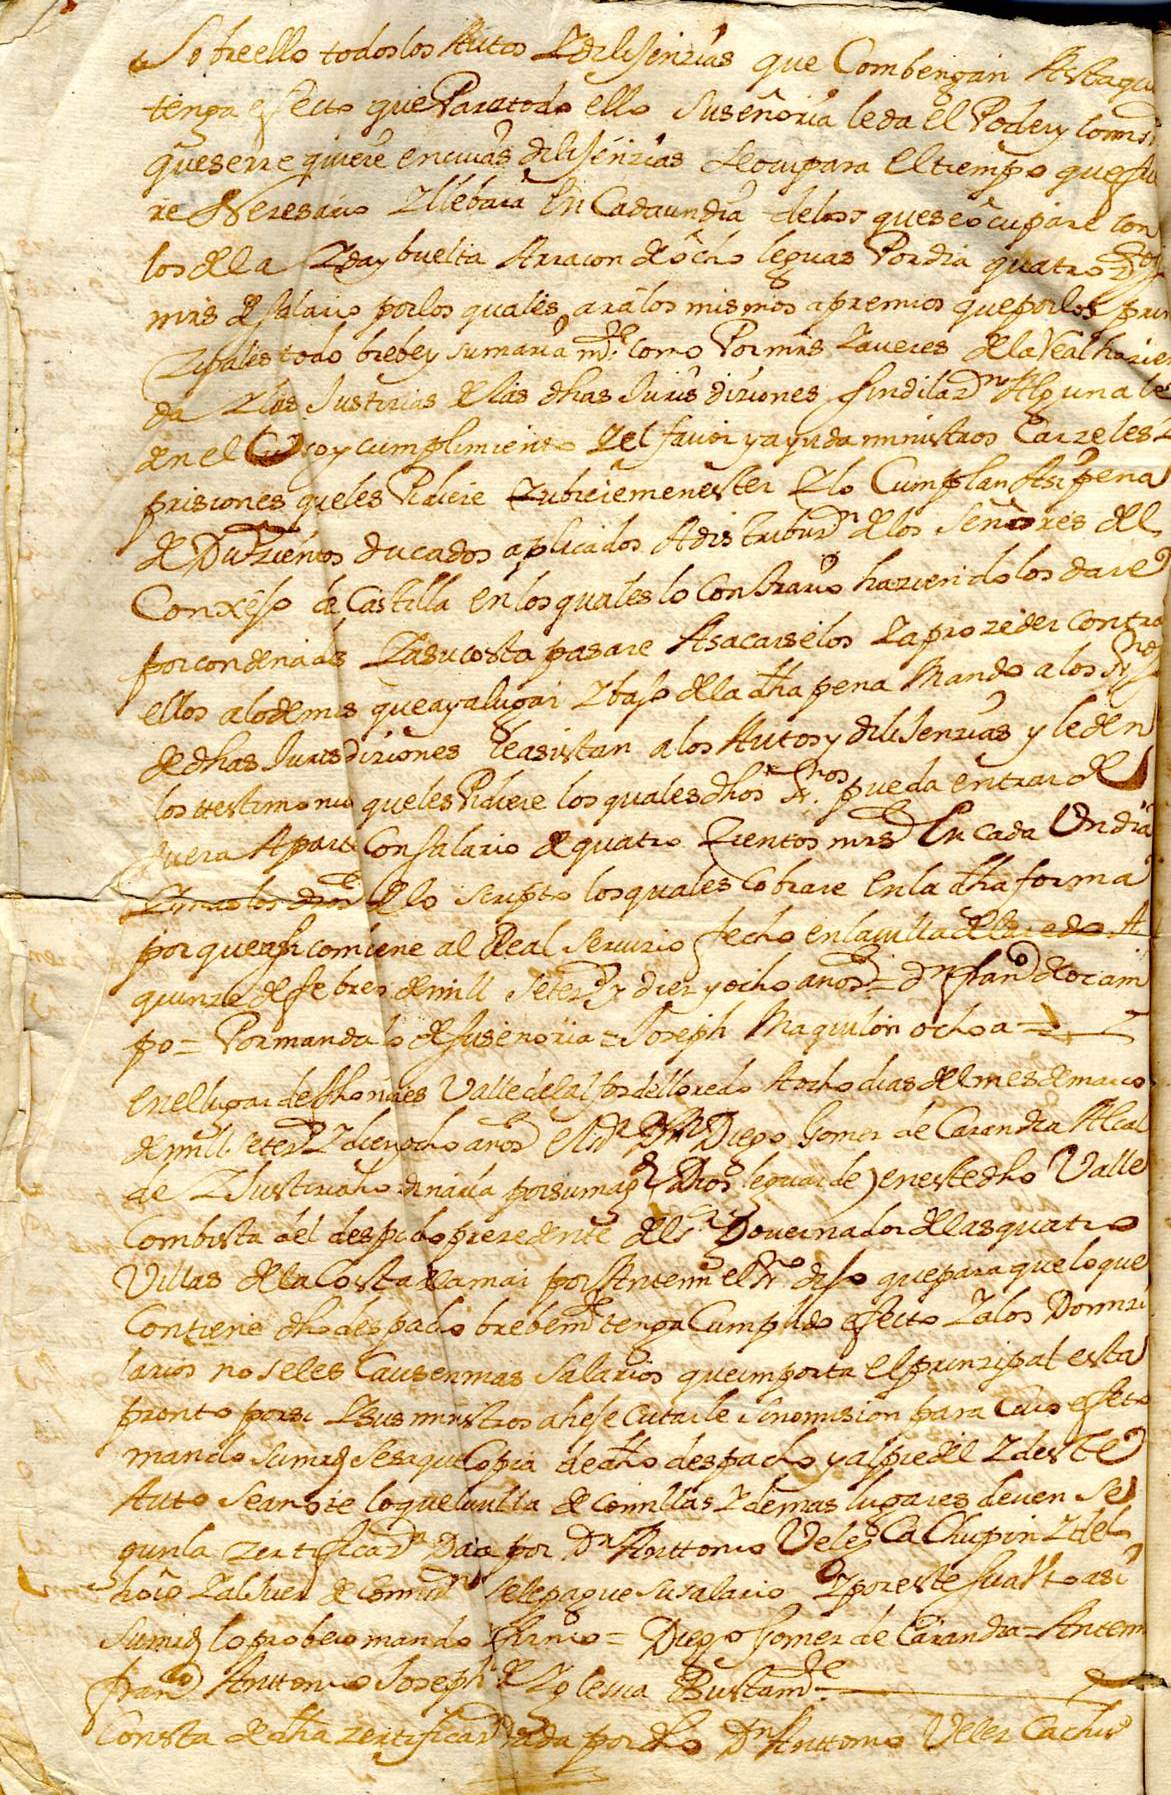 Sobre ello todos los Autos Y dilisenzias que Combengan Asta que
tenga efecto que Para todo ello Su señoria le da el Poder y Comis
que se rre quiere en cuias dilisenzias se ocupara El tiempo que fue
re Nezesario Y llebara En Cada un dia de los que se ocupare con
los de la Yda y buelta A rraçon de ocho leguas Por dia quatro
mrs de salario por los quales ara los mismos apremios que por los prin
zipales todo brebe y sumaria mte como Por mrs Y averes de la Real hazien
da Y las Justizias de las dhas Jurisdiziones sin dilazn Alguna le
den el Uso y cumplimiento Y el favor y ayuda ministros Carzeles Y
prisiones que les Pidiere Y ubiere menester Y lo Cumplan Asi pena
de Duzientos ducados aplicados A distribuzn de los Señores del
Consejo de Castilla en los quales lo Contrario haziendo los dare
por condenados Y a su costa pasare A sacarselos Y a prozeder contra
ellos a lo demas que aya lugar Y baso de la dha pena Mando a los srnos
de dhas Jurisdiziones le asistan a los Autos y dilisenzias y le den
los testimonios que les Pidiere los quales dhos srnos pueda entrar de
fuera Aparte Con salario de quatro Zientos mrs En cada Un dia
Y mas los dros de lo scripto los quales Cobrare En la dha forma
por que asi combiene al Real servizio fecho en la villa de laredo A
quinze de febrero de mill setezs y diez y ocho años = Dn Franco de ocam
po = Por mandado de su señoria = Joseph Maquilon ochoa =
En el lugar de Rhonires Valle del alfos de lloredo A ocho dias del mes de marco
de mill setezs Y diez y ocho años el sr Dn Diego Gomez de Carandia Alcal
de Y Justizia hordinaria por su magd (que Dios le guarde) en este dho Valle
Con bista del despacho prezedente del sr Governador de las quatro
Villas de la Costa de la mar por Ante mi el srno dijo que para que lo que
Contiene dho despacho brebemte tenga Cumplido efecto Y a los Domizi
liarios no se les Causen mas salarios que importa el prinzipal esta
pronto por si Y sus ministros a hesecutarle sin omision para Cuio efecto
mando su mrd se saque Copia de dho despacho y al pie del Y deste
Auto se anote lo que la villa de comillas Y demas lugares deven se
gun la zertificazn Dada por Dn Anttonio Velez Cachupin Y del
Y al Juez de Comisn se le pague su salario Y por este su auto asi
Su mrd lo probeio mando Y firmo = Diego Gomez de Carandia = Ante mi
Franco Anttonio Joseph de Yglesia Bustamte
Consta de dha zertificazn dada por dho Dn Anttonio Velez Cachu